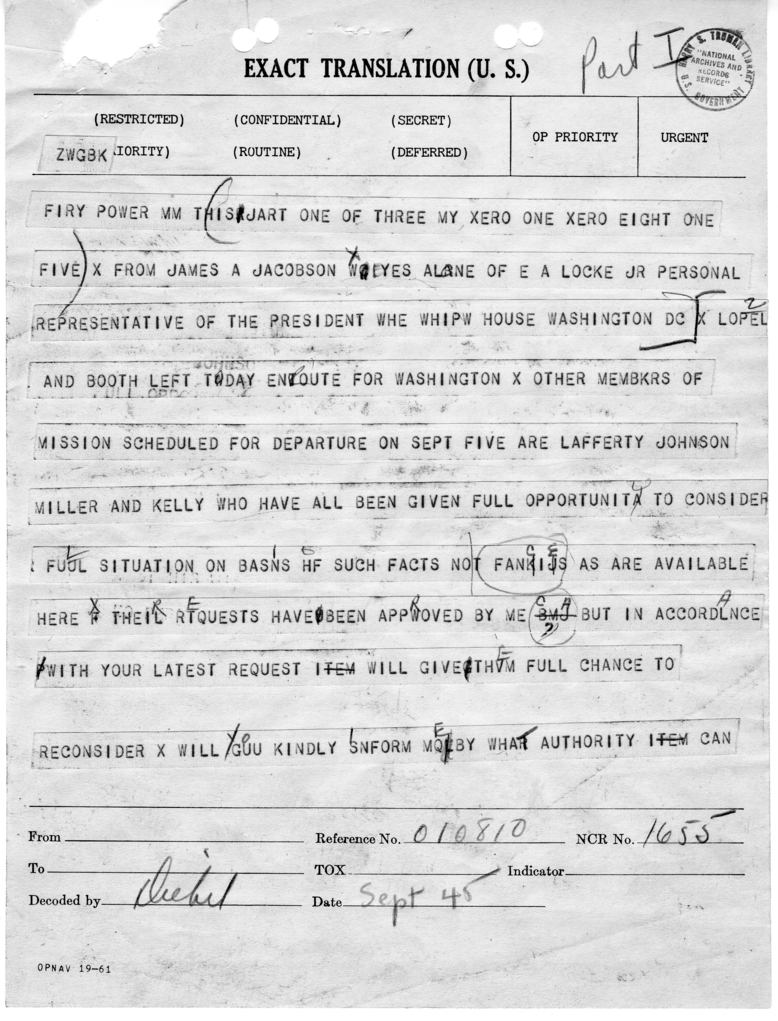 Part I
HARRY S. TRUMAN LIBRARY
"NATIONAL
ARCHIVES AND
RECORDS
SERVICE"
U.S. GOVERNMENT
EXACT TRANSLATION (U. S.)
(RESTRICTED) (CONFIDENTIAL) (SECRET)
OP PRIORITY URGENT
ZWGBK IORITY) (ROUTINE) (DEFERRED)
FIRY POWER MM THIS JART ONE OF THREE MY XERO ONE XERO EIGHT ONE
FIVE X FROM JAMES A JACOBSON LYES ALONE OF E A LOCKE JR PERSONAL
REPRESENTATIVE OF THE PRESIDENT WHE WHIPW HOUSE WASHINGTON DC X LOPEL
AND BOOTH LEFT TODAY ENROUTE FOR WASHINGTON X OTHER MEMBKRS OF
MISSION SCHEDULED FOR DEPARTURE ON SEPT FIVE ARE LAFFERTY JOHNSON
MILLER AND KELLY WHO HAVE ALL BEEN GIVEN FULL OPPORTUNITY TO CONSIDER
FULL SITUATION ON BASIS OF SUCH FACTS NOT FANCIES AS ARE AVAILABLE
HERE X THEIR REQUESTS HAVE BEEN APPROVED BY ME BUT IN ACCORDANCE
WITH YOUR LATEST REQUEST I WILL GIVE THEM FULL CHANCE TO
RECONSIDER X WILL YOU KINDLY INFORM ME BY WHAT AUTHORITY I CAN
From Reference No. 010810 NCR No. 1655
To TOX Indicator
Decoded by Date Sept 45
OPNAV 19-61